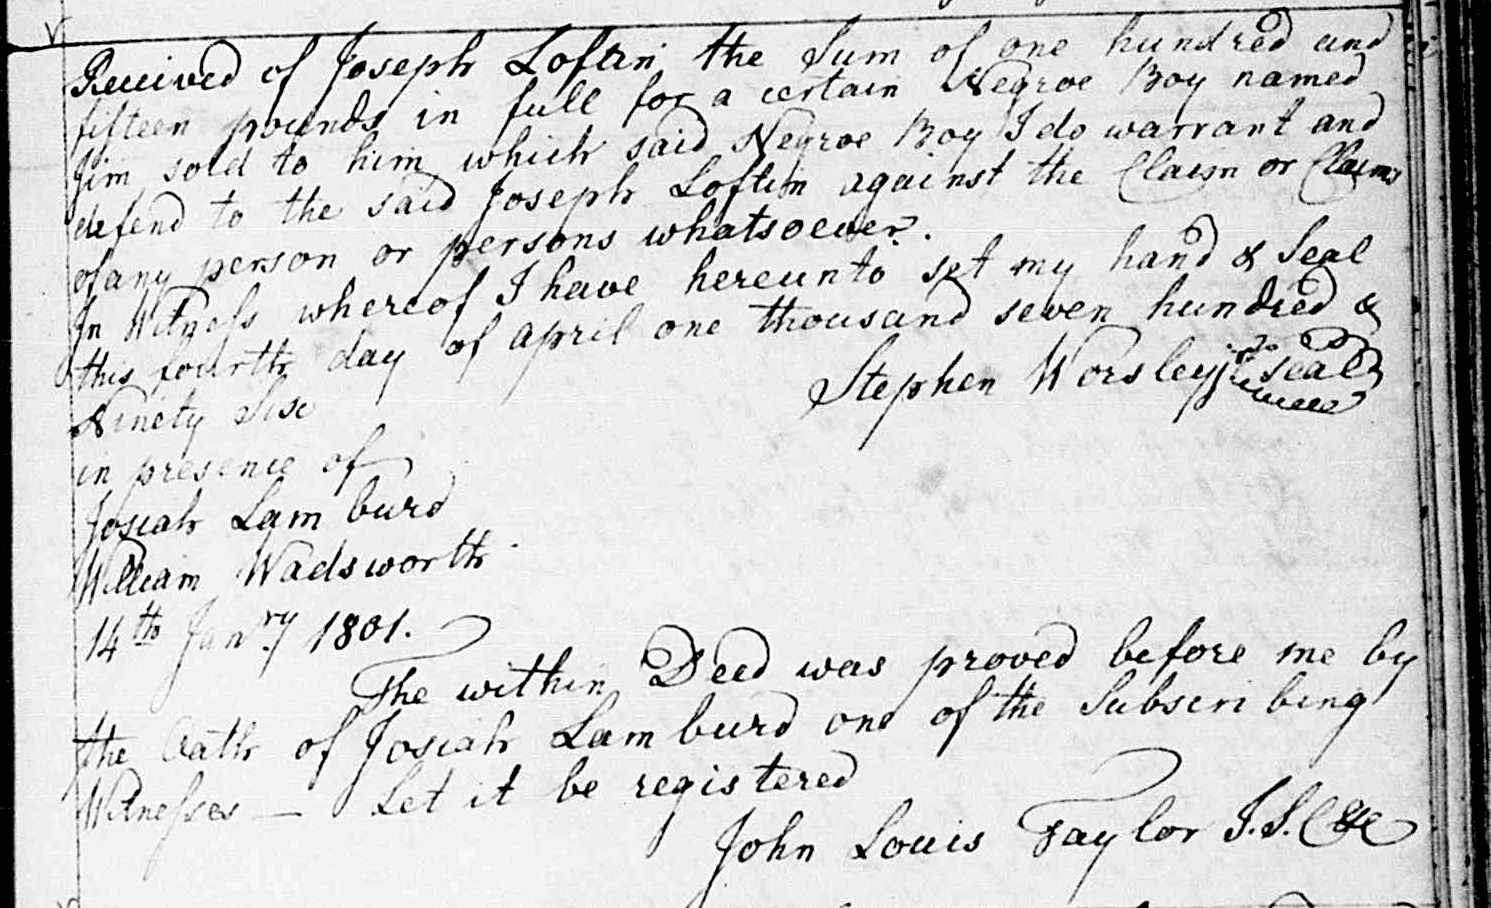 Received of Joseph Loftin the Sum of one hundred and
fifteen pounds in full for a certain Negroe Boy named
Jim sold to him which said Negroe Boy I do warrant and
defend to the said Joseph Loftin against the Claim or Claims
of any person or persons whatsoever.
In Witness whereof I have hereunto set my hand & Seal
this fourth day of april one thousand seven hundred &
Ninety Six
Stephen Worsley seal
in presence of
Josiah Lamburd
William Wadsworth
14th Janry 1801.
The within Deed was proved before me by
the Oath of Josiah Lamburd one of the Subscribing
Witnesses — Let it be registered
John Louis Taylor J.S.C &c